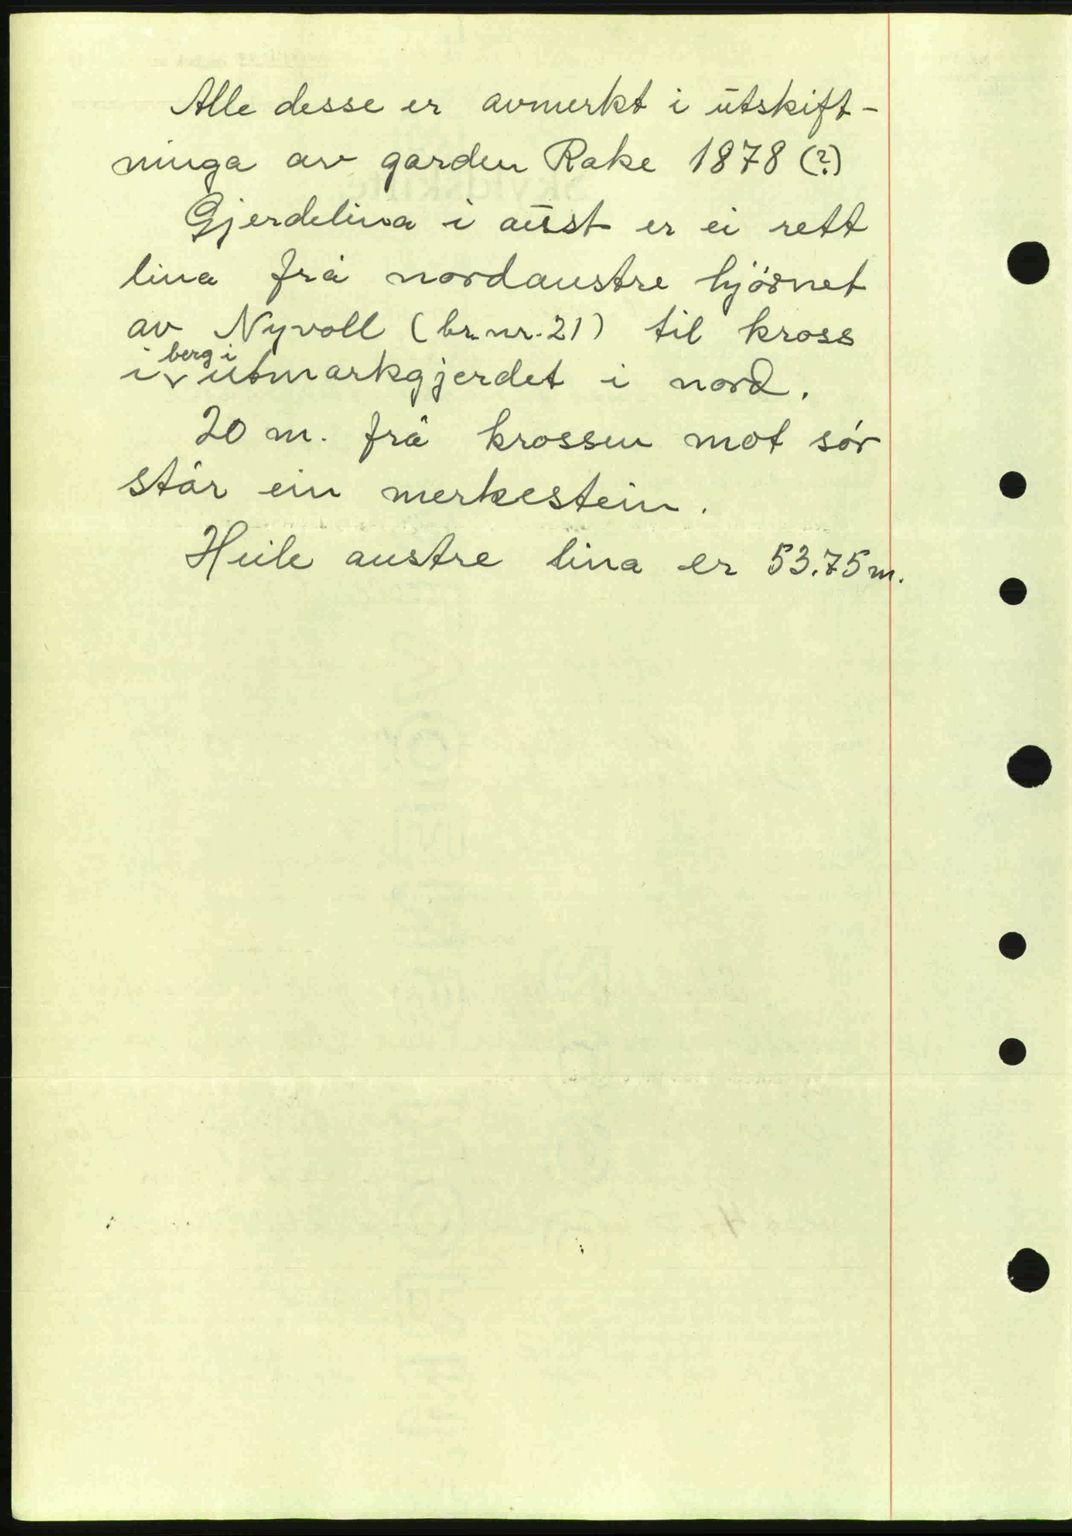 Alle desse er avmerkt i utskift-
ninga av garden Rake 1878 (?)
Gjerdelina i aust er ei rett
lina frå nordaustre hjørnet
av Nyvoll (br. nr. 21) til kross
i berg i utmarkgjerdet i nord.
20 m. frå krossen mot sør
står ein merkestein.
Heile austre lina er 53.75 m.